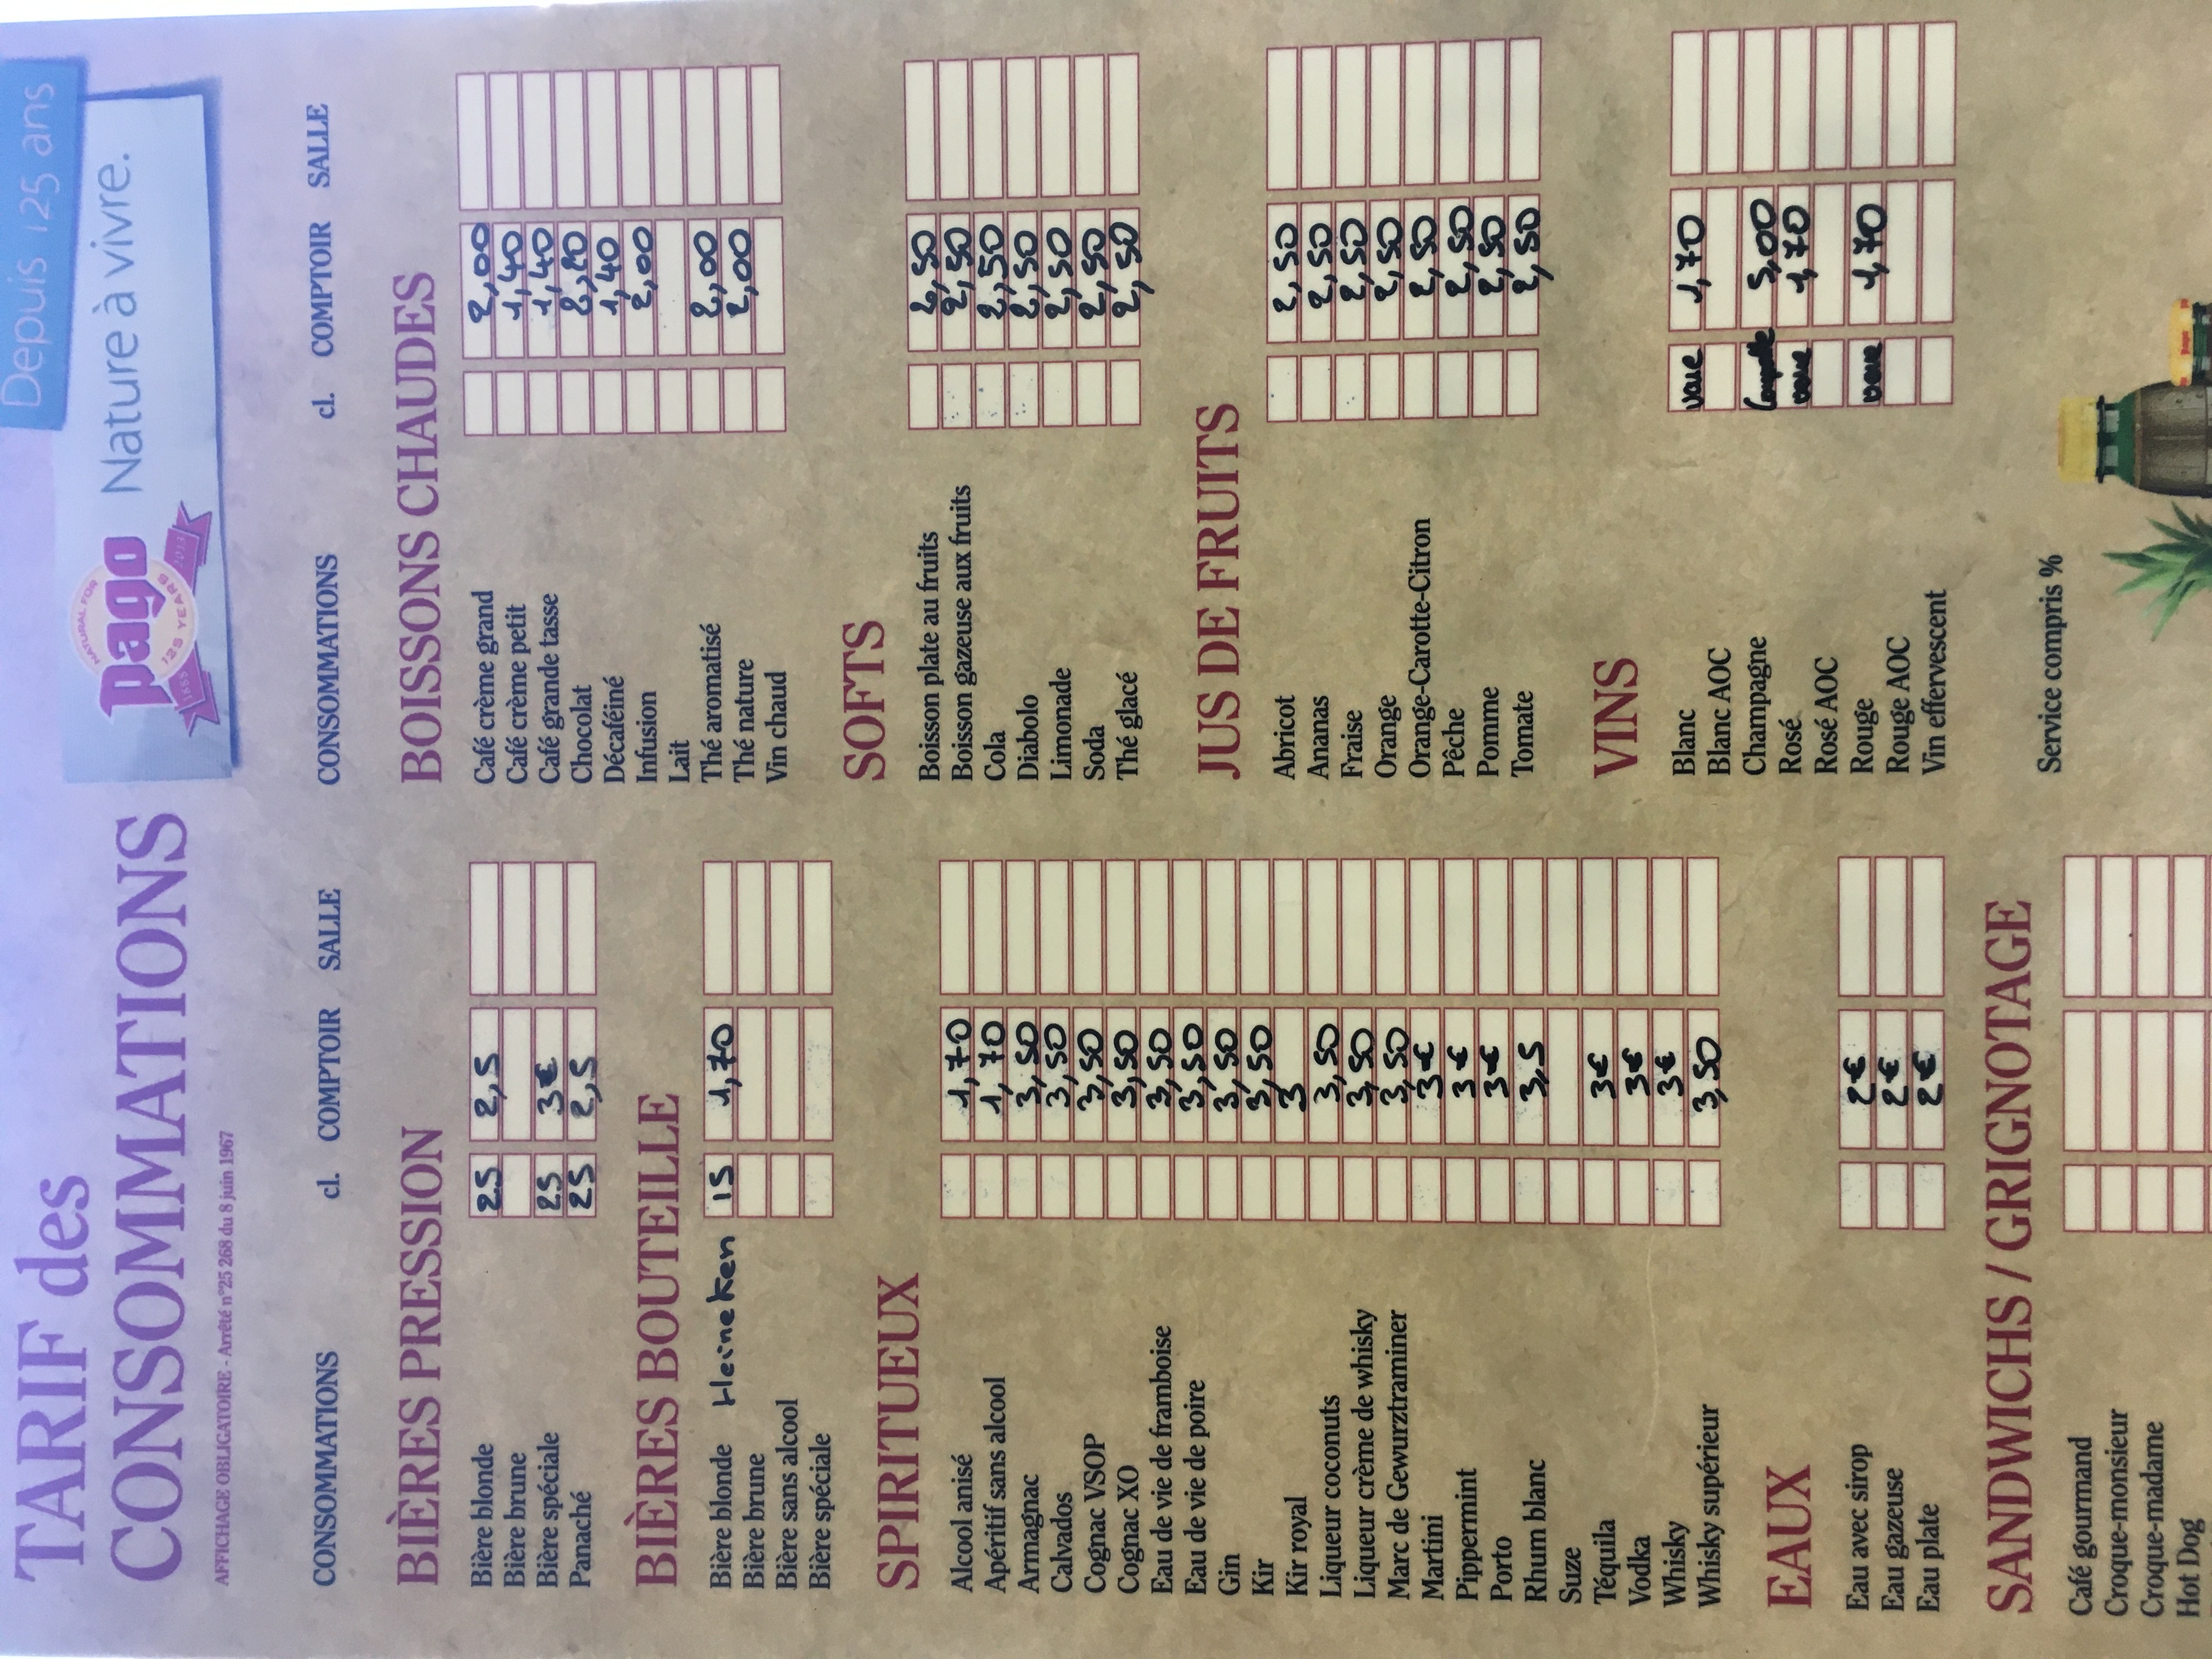 TARIF des
CONSOMMATIONS
AFFICHAGE OBLIGATOIRE - Arrêté n°25 268 du 8 juin 1967
CONSOMMATIONS cl. COMPTOIR SALLE
BIÈRES PRESSION
Bière blonde 25 2,5
Bière brune
Bière spéciale 25 3€
Panaché 25 2,5
BIÈRES BOUTEILLE
Bière blonde Heineken 15 1,70
Bière brune
Bière sans alcool
Bière spéciale
SPIRITUEUX
Alcool anisé 1,70
Apéritif sans alcool 1,70
Armagnac 3,50
Calvados 3,50
Cognac VSOP 3,50
Cognac XO 3,50
Eau de vie de framboise 3,50
Eau de vie de poire 3,50
Gin 3,50
Kir 3,50
Kir royal 3
Liqueur coconuts 3,50
Liqueur crème de whisky 3,50
Marc de Gewurztraminer 3,50
Martini 3€
Pippermint 3€
Porto 3€
Rhum blanc 3,5
Suze
Téquila 3€
Vodka 3€
Whisky 3€
Whisky supérieur 3,50
EAUX
Eau avec sirop 2€
Eau gazeuse 2€
Eau plate 2€
SANDWICHS / GRIGNOTAGE
Café gourmand
Croque-monsieur
Croque-madame
Hot Dog
Depuis 125 ans
NATURAL FOR
pago
125 YEARS
1888 2013
Nature à vivre.
CONSOMMATIONS cl. COMPTOIR SALLE
BOISSONS CHAUDES
Café crème grand 2,00
Café crème petit 1,40
Café grande tasse 1,40
Chocolat 2,20
Décaféiné 1,40
Infusion 2,00
Lait
Thé aromatisé 2,00
Thé nature 2,00
Vin chaud
SOFTS
Boisson plate au fruits 2,50
Boisson gazeuse aux fruits 2,50
Cola 2,50
Diabolo 2,50
Limonade 2,50
Soda 2,50
Thé glacé 2,50
JUS DE FRUITS
Abricot 2,50
Ananas 2,50
Fraise 2,50
Orange 2,50
Orange-Carotte-Citron 2,50
Pêche 2,50
Pomme 2,50
Tomate 2,50
VINS
Blanc verre 1,70
Blanc AOC
Champagne 5,00
Rosé verre 1,70
Rosé AOC
Rouge verre 1,70
Rouge AOC
Vin effervescent
Service compris %